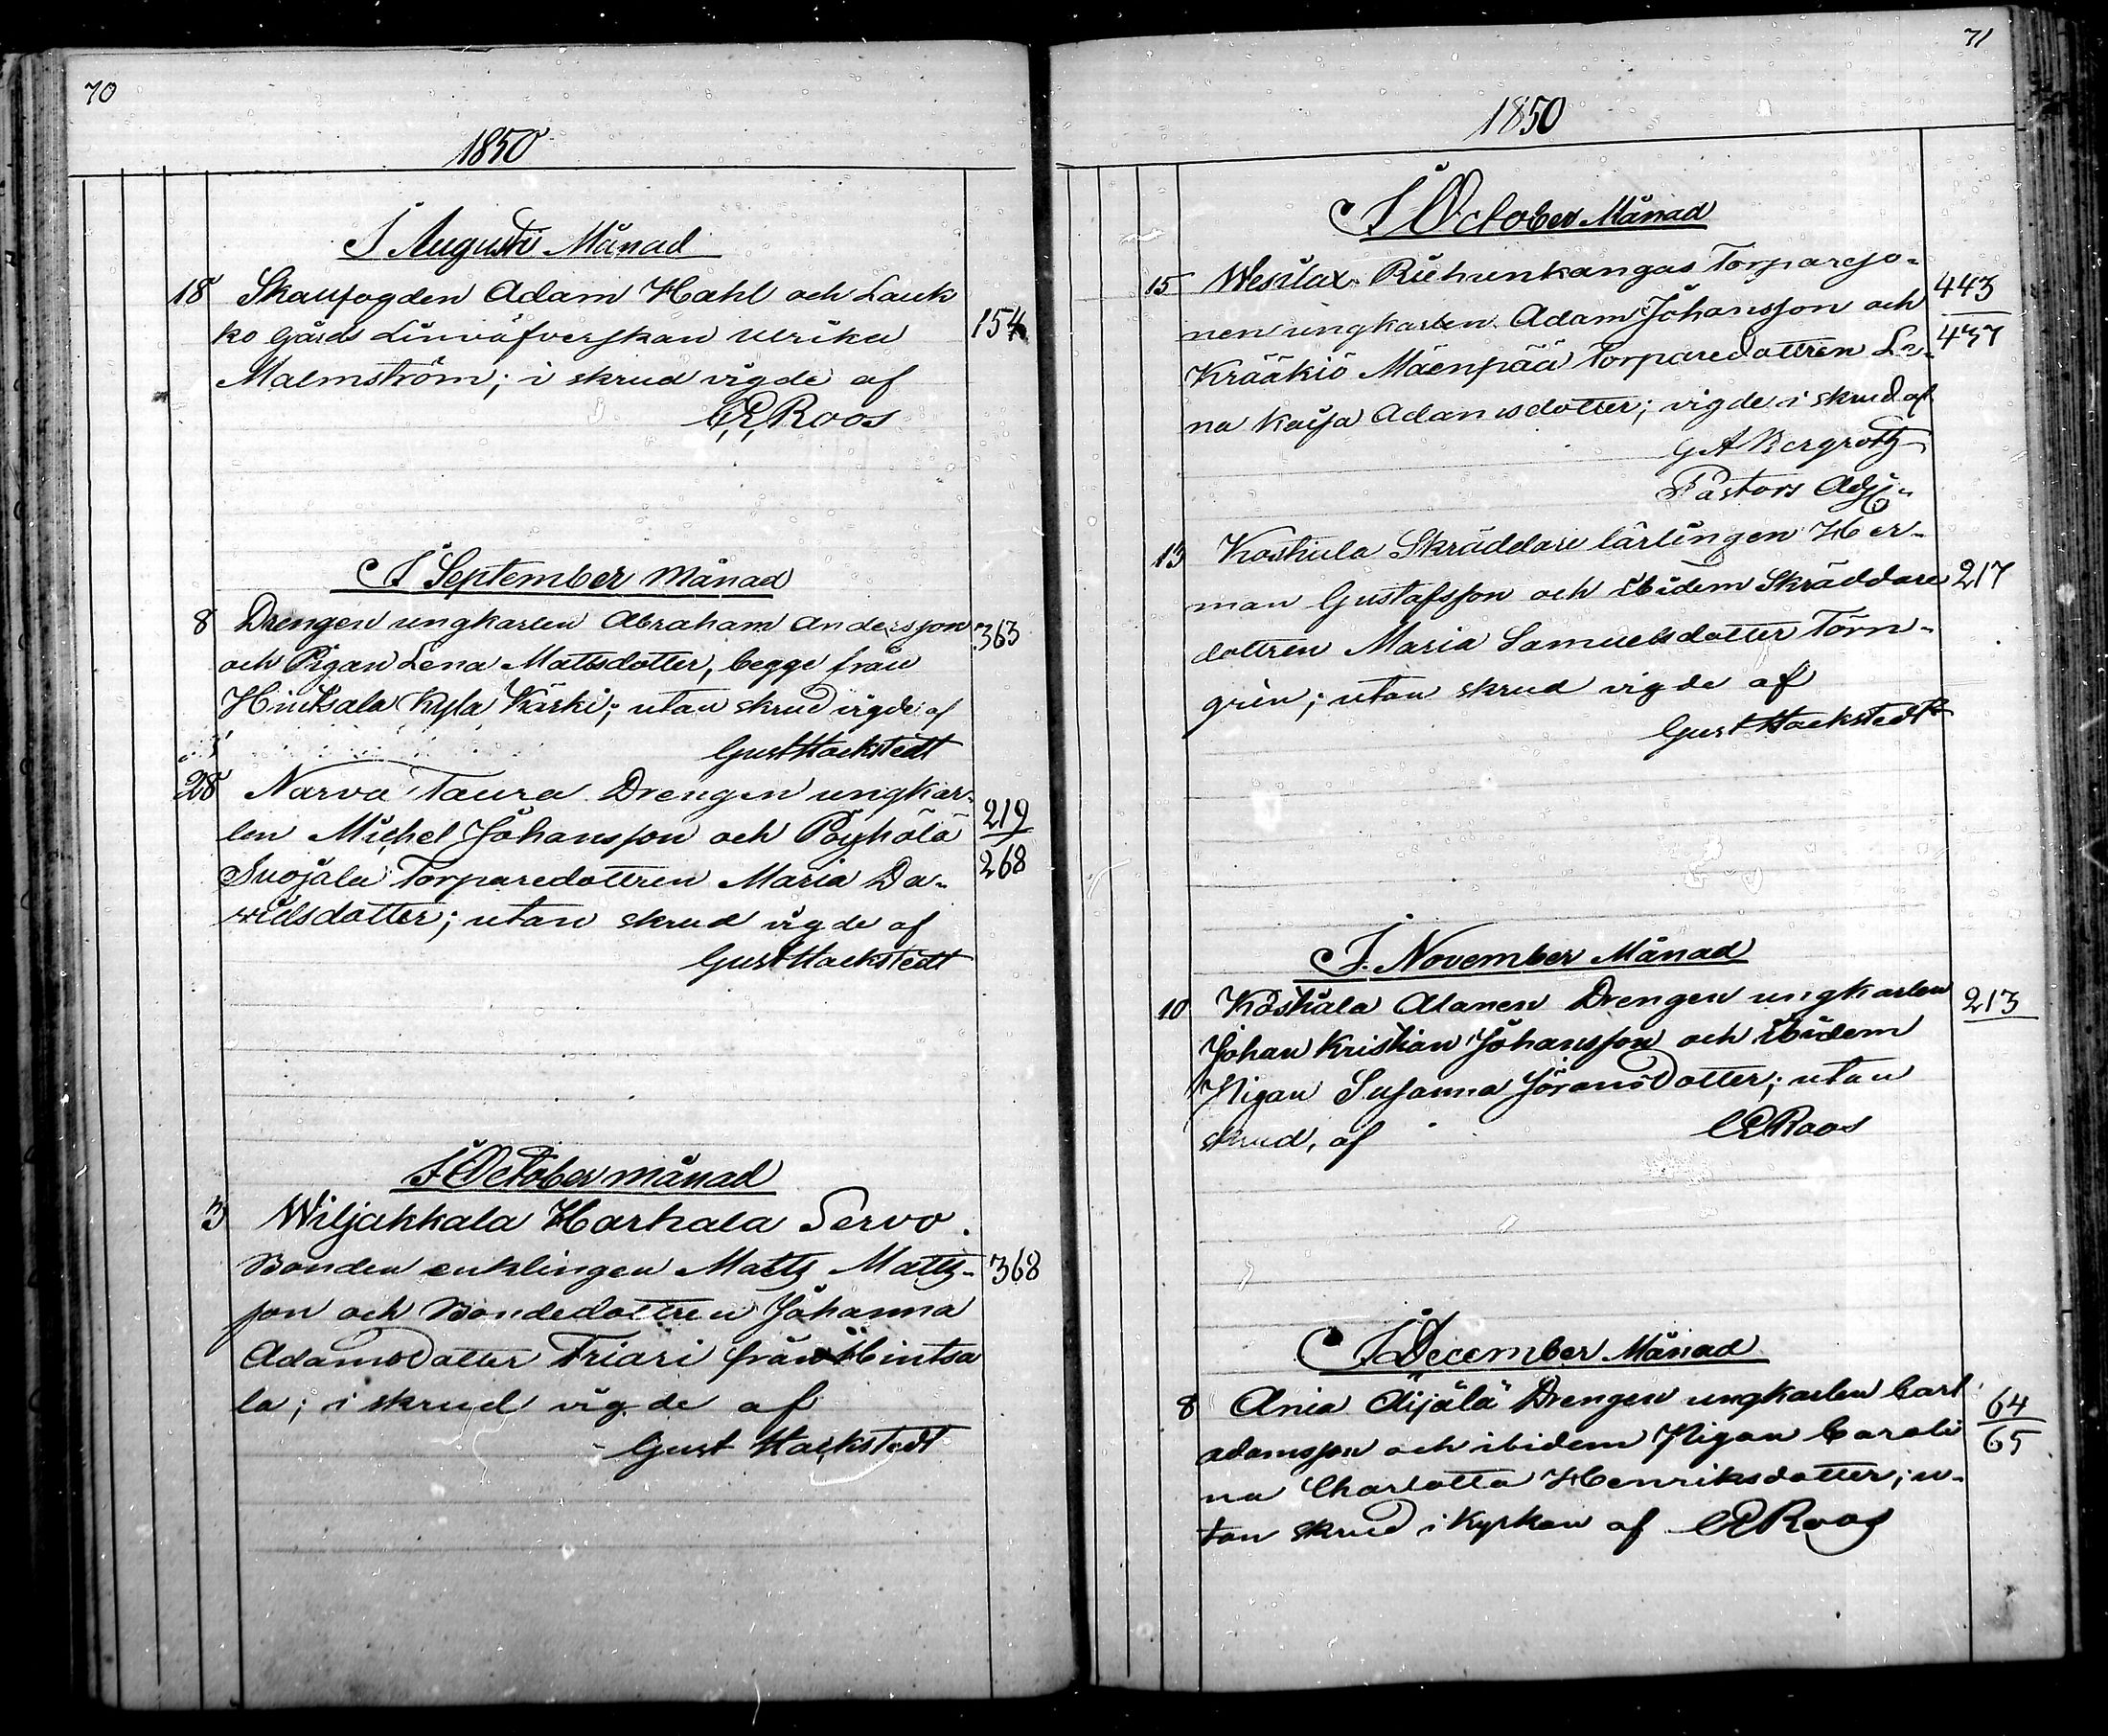 70
1850
I Augusti Månad
18 Skaufogden Adam Hahl och Lauk
ko Gårds Linväfverskan Ulrika 154
Malmström; i skrud vigde af
CE Roos
I September Månad
8 Drengen ungkarlen Abraham Andersson 363
och Pigan Lena Mattsdotter, begge från
Hintsala Kyla Kärki; utan skrud vigde af
Gust Hackstedt
28 Narva Taura Drengen ungkar-
len Michel Johansson och Pöyhölä 219
268
Suojala Torparedottren Maria Da-
vidsdotter; utan skrud vigde af
Gust Hackstedt
I October månad
3 Wiljakkala Harhala Servo
Bonden enklingen Matts Matts- 368
son och Bondedottren Johanna
Adamsdotter Friari från Hintsa
la; i skrud vigde af
Gust Hackstedt
71
1850
I October Månad
15 Wesilax Riihunkangas Torpareso- 443
nen ungkarlen Adam Johansson och 437
Krääkiö Mäenpää Torparedottren Le-
na Kaisa Adamsdotter; vigde i skrud af
G A Bergroth
Pastors Adj:
13 Koskula Skräddare lärlingen Her-
man Gustafsson och ibidem Skräddare 217
dottren Maria Samuelsdotter Törn-
grén; utan skrud vigde af
Gust Hackstedt
I November Månad
10 Koskula Alanen Drengen ungkarlen 213
Johan Kristian Johansson och ibidem
Pigan Susanna Jöransdotter; utan
skrud, af CE Roos
I December Månad
8 Ania Äijälä Drengen ungkarlen Carl 64
Adamsson och ibidem Pigan Caroli 65
na Charlotta Henriksdotter; u-
tan skrud i Kyrkan af CE Roos